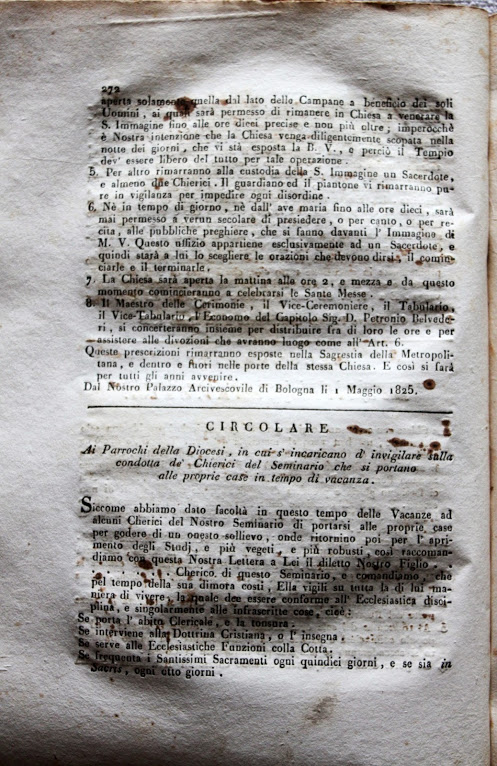 272
aperta solamente quella dal lato delle Campane a beneficio dei soli
Uomini, ai quali sarà permesso di rimanere in Chiesa a venerare la
S. Immagine fino alle ore dieci precise e non più oltre; imperocchè
è Nostra intenzione che la Chiesa venga diligentemente scopata nella
notte dei giorni, che vi stà esposta la B. V., e perciò il Tempio
dev' essere libero del tutto per tale operazione.
5. Per altro rimarranno alla custodia della S. Immagine un Sacerdote,
e almeno due Chierici. Il guardiano ed il piantone vi rimarranno pu-
re in vigilanza per impedire ogni disordine.
6. Nè in tempo di giorno, nè dall' ave maria fino alle ore dieci, sarà
mai permesso a verun secolare di presiedere, o per canto, o per re-
cita, alle pubbliche preghiere, che si fanno davanti l' Immagine di
M. V. Questo uffizio appartiene esclusivamente ad un Sacerdote, e
quindi starà a lui lo scegliere le orazioni che devono dirsi, il comin-
ciarle e il terminarle.
7. La Chiesa sarà aperta la mattina alle ore 2, e mezza e da questo
momento comincieranno a celebrarsi le Sante Messe.
8. Il Maestro delle Cerimonie, il Vice-Ceremoniere, il Tabulario,
il Vice-Tabulario, l'Economo del Capitolo Sig. D. Petronio Belvede-
ri, si concerteranno insieme per distribuire fra di loro le ore e per
assistere alle divozioni che avranno luogo come all' Art. 6.
Queste prescrizioni rimarranno esposte nella Sagrestia della Metropoli-
tana, e dentro e fuori nelle porte della stessa Chiesa. E così si farà
per tutti gli anni avvenire.
Dal Nostro Palazzo Arcivescovile di Bologna li 1 Maggio 1825.
CIRCOLARE
Ai Parrochi della Diocesi, in cui s' incaricano d' invigilare sulla
condotta de' Chierici del Seminario che si portano
alle proprie case in tempo di vacanza.
Siccome abbiamo dato facoltà in questo tempo delle Vacanze ad
alcuni Cherici del Nostro Seminario di portarsi alle proprie case
per godere di un onesto sollievo, onde ritornino poi per l' apri-
mento degli Studj, e più vegeti, e più robusti, così raccoman-
diamo con questa Nostra Lettera a Lei il diletto Nostro Figlio . .
. . . . . Cherico di questo Seminario, e comandiamo, che
pel tempo della sua dimora costì, Ella vigili su tutta la di lui ma-
niera di vivere, la quale dee essere conforme all' Ecclesiastica disci-
plina, e singolarmente alle infrascritte cose, cioè:
Se porta l' abito Clericale, e la tonsura.
Se interviene alla Dottrina Cristiana, o l' insegna.
Se serve alle Ecclesiastiche Funzioni colla Cotta.
Se frequenta i Santissimi Sacramenti ogni quindici giorni, e se sia in
Sacris, ogni otto giorni.